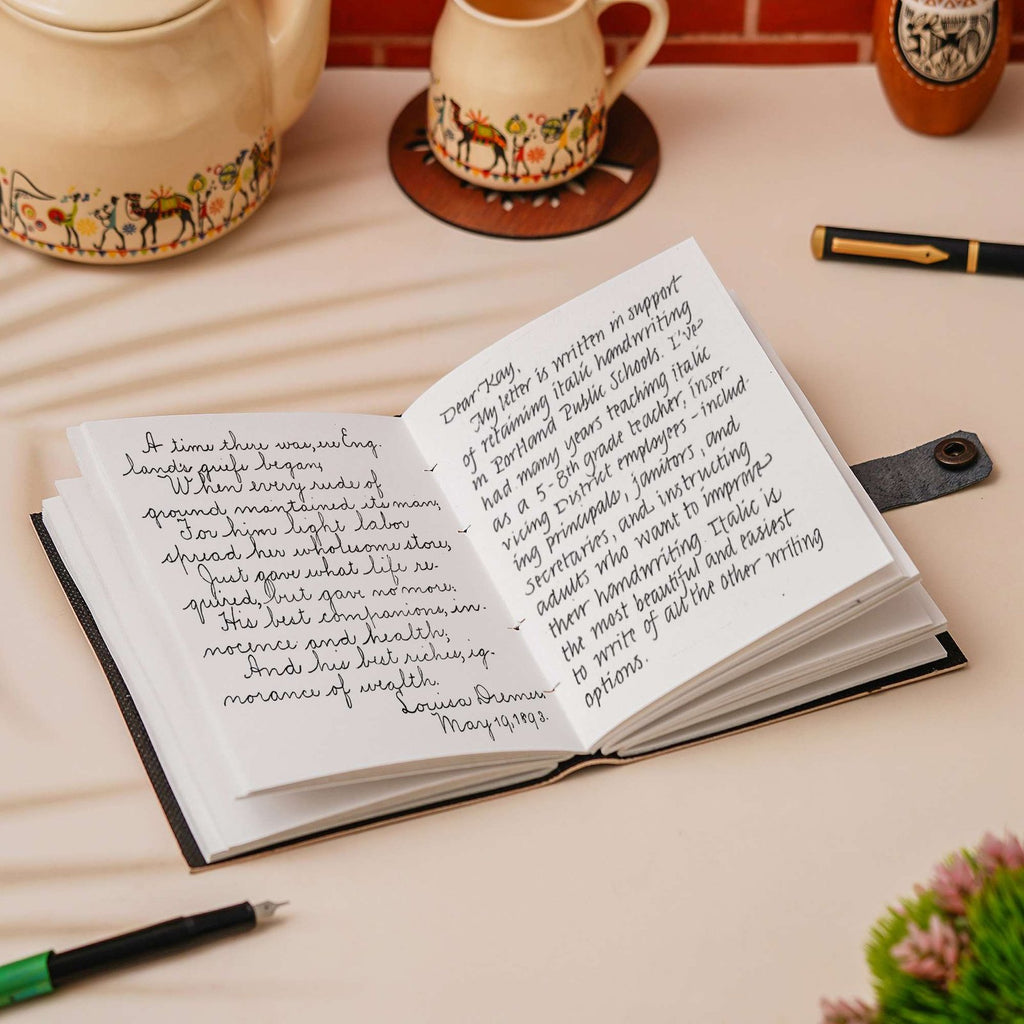 A time there was, ere Eng-
land's griefs began,
When every rude of
ground mantained its man;
For him light labor
spread her wholesome store,
Just gave what life re-
quired, but gave no more.
His best companions, in-
nocence and health;
And his best riches, ig-
norance of wealth.
Louisa
May 19, 1893.
Dear Kay,
My letter is written in support
of retaining italic handwriting
in Portland Public Schools. I've
had many years teaching italic
as a 5-8th grade teacher, inser-
vicing District employees - includ-
ing principals, janitors, and
secretaries, and instructing
adults who want to improve
their handwriting. Italic is
the most beautiful and easiest
to write of all the other writing
options.